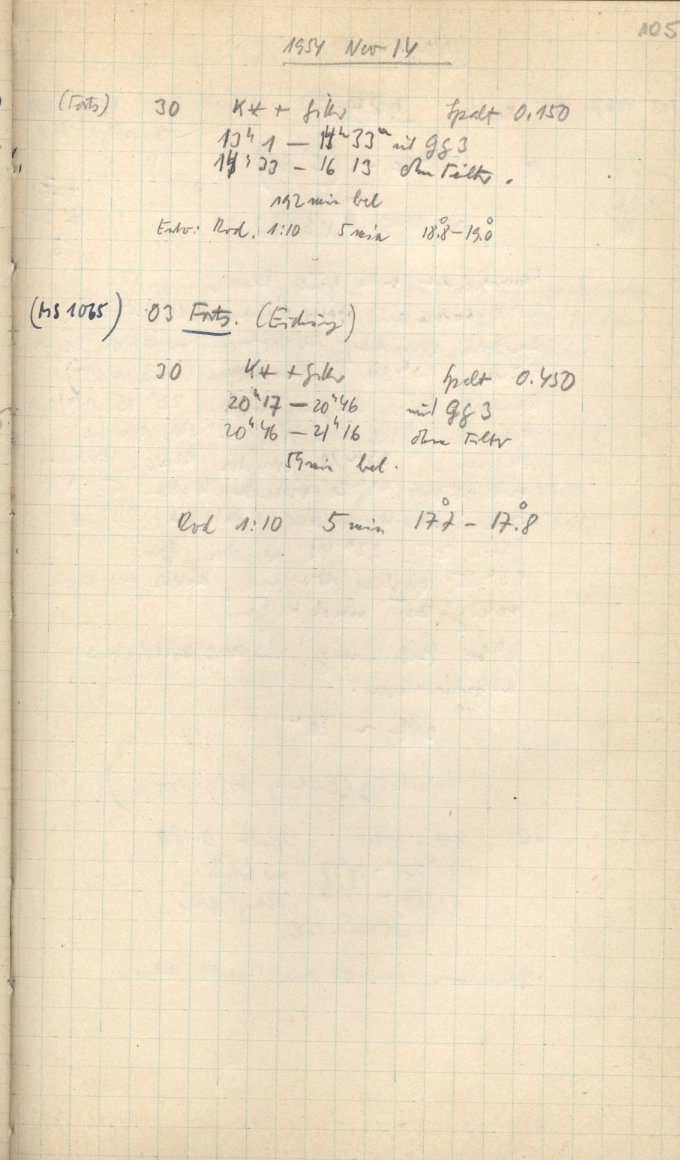 105
1954 Nov 14
(Forts) 30 K* + Gitter Spalt 0.150
13h 1 — 14h 33m mit GG3
14h 33 – 16 13 ohne Filter.
192 min bel
Entw: Rod. 1:10 5 min 18.°8 – 19.°0
(MS 1065) 03 Forts. (Eichung)
30 K* + Gitter Spalt 0.450
20h 17 — 20h 46 mit GG3
20h 46 — 21h 16 ohne Filter
59 min bel.
Rod 1:10 5 min 17.°7 – 17.°8